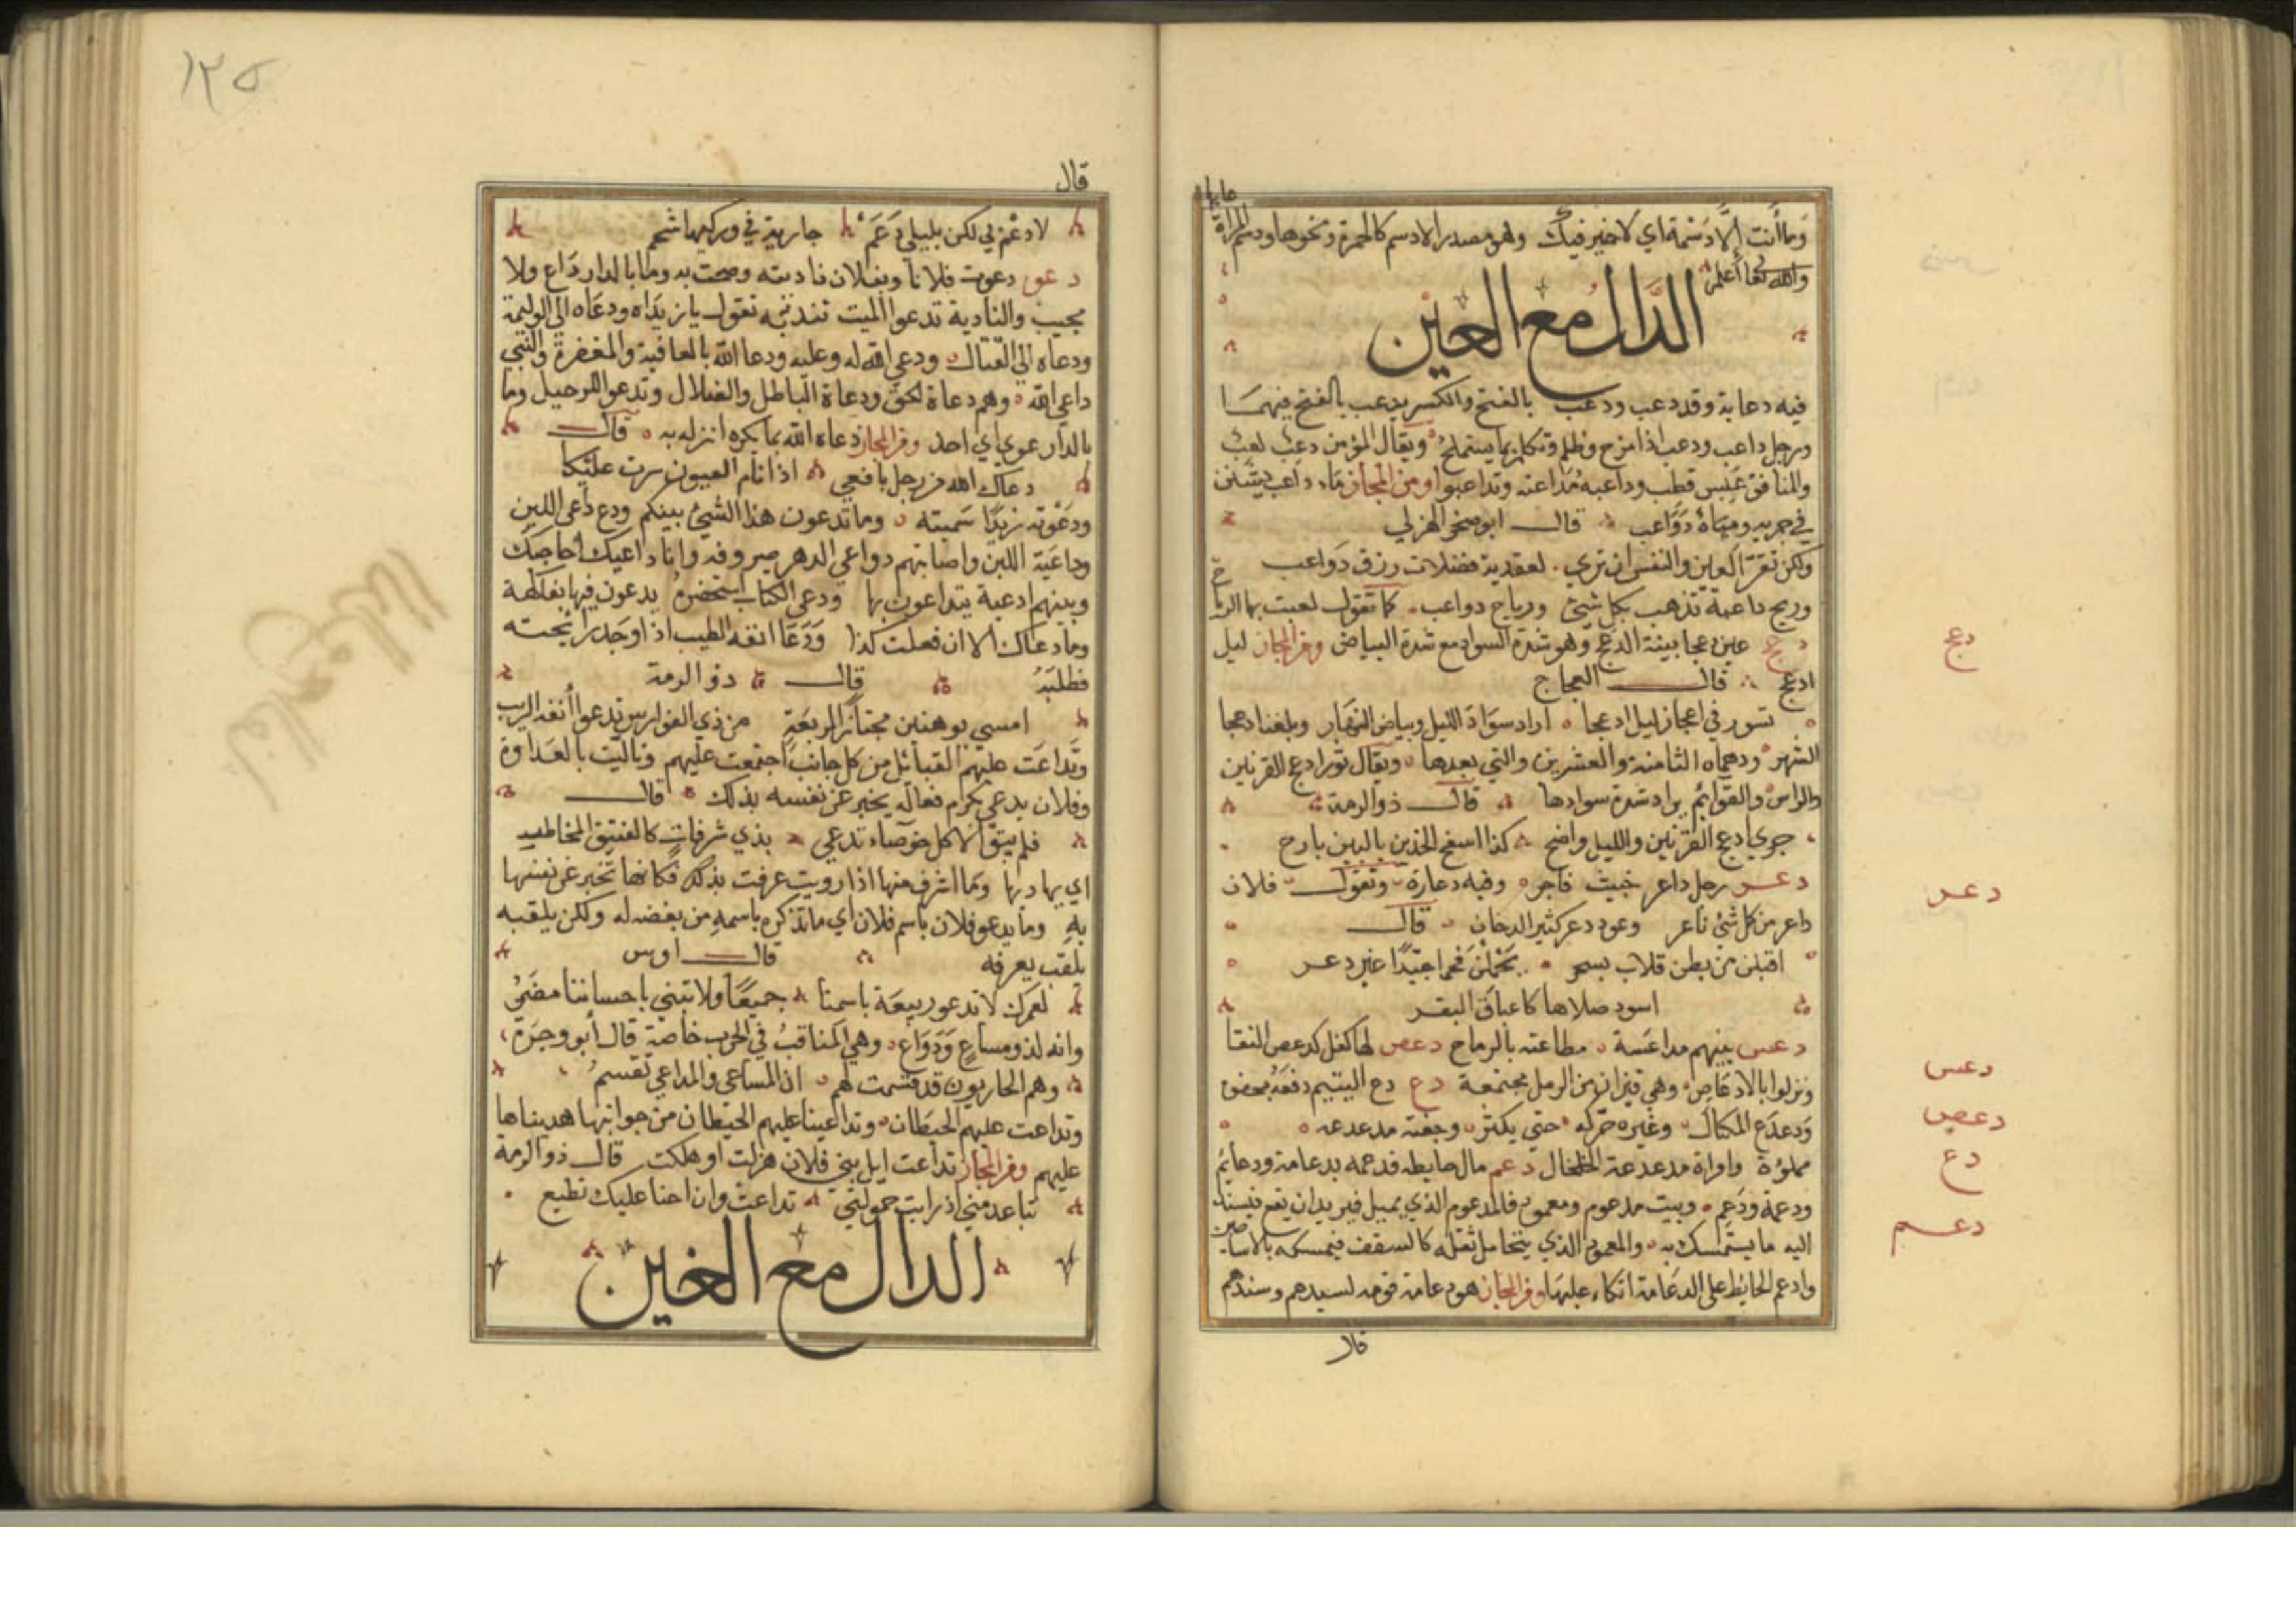 وما أنت إلا دسمة اي لا خير فيك وهو مصدر الادسم كالحمرة ونحوها ودسم المرأة
والله تعا أعلم
الدال مع العين
فيه دعابة وقد دعب ودعب بالفتح والكسر يدعب بالفتح فيهما
ورجل داعب ودعب اذا مزح وتكلم بما يستملح ويقال المؤمن دعب لعب
والمنافق عبس قطب وداعبه مداعبة وتداعبوا ومن المجاز ماء داعب يستن
في جريه ومياه دواعب قال ابو صخر الهزلي
ولكن تقر العين والنفس ان تري لعقدية فضلات زرق دواعب
وريح داعبة تذهب بكل شئ ورياح دواعب كما تقول لعبت بها الريا ح
دعج عين دعجا بينة الدعج وهو شدة السواد مع شدة البياض ومن المجاز ليل
ادعج قال العجاج
تسور في اعجاز ليل ادعجا اراد سواد الليل وبياض النهار وبلغنا دعجا
الشهر ودهماه الثامنة والعشرين والتي بعدها ويقال ثور ادعج القرنين
والراس والقوائم يراد شدة سوادها قال ذو الرمة
جري ادعج القرنين والليل واضح كذا اسفع الخدين بالبين بارح
دعر رجل داعر خبيث فاجر وفيه دعارة وتقول فلان
داعر من كل شئ ناعر وعود دعر كثير الدخان قال
اقبلن من بطن قلاب بسحر يحملن فحما جيدا غير دعر
اسود صلاها كاعباق البقر
دعس بينهم مداعسة مطاعنة بالرماح دعص لها كفل كدعص النقا
ونزلوا بالادعاص وهي قيزان من الرمل مجتمعة دع دع اليتيم دفعه بجفوة
ودعدع المكتال وغيره حركه حتي يكتنز وجفنة مدعدعه
مملؤة وامراة مدعدعة الخلخال دعم مال حايطه فدعمه بدعامة ودعايم
ودعمة ودعم وبيت مدعوم ومعمود فالمدعوم الذي يميل فيريد ان يقع فيسند
اليه ما يستمسك به والمعمود الذي يتحامل ثقله كالسقف فيمسكه بالاساطين
وادعم الحايط علي الدعامة اتكاء عليها ومن المجاز هو دعامة قومه لسيدهم وسندهم
قال
دعج
دعر
دعس
دعص
دع
دعم
١٢٥
قال
لا دعم بي لكن بليلي دعم جارية في وركيها شحم
دعو دعوت فلانا وبفلان ناديته وصحت به وما بالدار داع ولا
مجيب والنادبة تدعوا الميت تندبه تقول يا زيداه ودعاه الي الوليمة
ودعاه الي القتال ودعي الله له وعليه ودعا الله بالعافية والمغفرة والنبي
داعي الله وهم دعاة الحق ودعاة الباطل والضلال وتدعوا للرحيل وما
بالدار دعوي اي احد ومن المجاز دعاه الله بما يكره انزله به قال
دعاك الله من رجل بافعي اذا نام العيون سرت عليكا
ودعوته زيدا سميته وما تدعون هذا الشئ بينكم ودع دعي اللبن
وداعية اللبن واصابتهم دواعي الدهر صروفه وانا داعيك أحاجيك
وبينهم ادعية يتداعون بها ودعي الكتاب استحضره يدعون فيها بفاكهة
وما دعاك الا ان فعلت كذا ودعا انفه الطيب اذا وجد رائحته
فطلبه قال ذو الرمة
امسي بوهنين مجتازا لمربعة من ذي الفوارس تدعوا أنفه الربب
وتداعت عليهم القبائل من كل جانب اجتمعت عليهم وتالبت بالعداوة
وفلان يدعي بكرم فعاله يخبر عن نفسه بذلك قال
فلم يبق الا كل خوصاء تدعي بذي شرفات كالفنيق المخاطر
اي بهاديها وبما اشرف منها اذا رويت عرفت بذلك فكانها تخبر عن نفسها
به وما يدعو فلان باسم فلان اي ما تذكره باسمه من بغضه له ولكن يلقبه
بلقب يعرفه قال اوس
لعمرك لا تدعو ربيعة باسمنا جميعا ولا تبني باحساننا مضر
وانه لذو مساع ودواع وهي المناقب في الحرب خاصة قال أبو وجزة
وهم الحاربون قد قسمت لهم ان المساعي والمداعي تقسم
وتداعت عليهم الحيطان وتداعينا عليهم الحيطان من جوانبها هديناها
عليهم ومن المجاز تداعت ابل بني فلان هزلت او هلكت قال ذو الرمة
تباعد مني اذ رايت حمولتي تداعت وان احنا عليك تطيع
الدال مع الغين